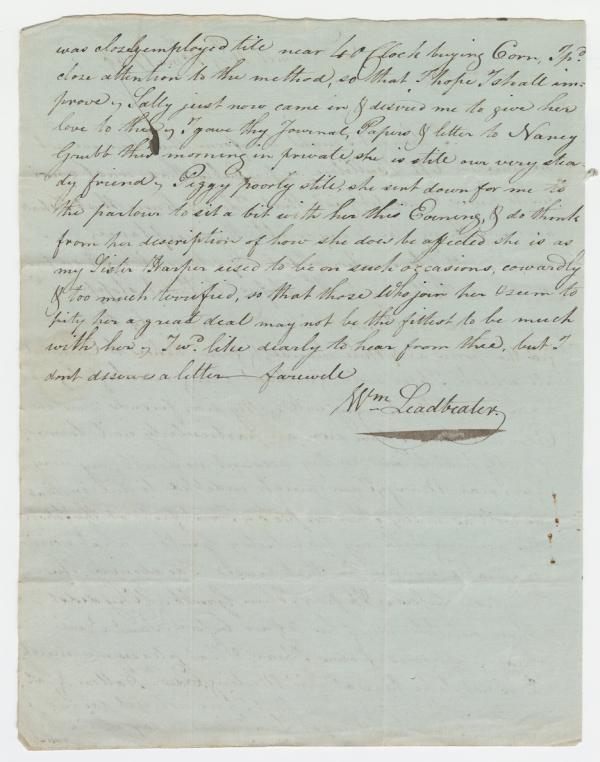 was closely employed tile near 4 o Clock buying Corn, I pd.
close attention to the method, so that I hope I shall im=
prove, Sally just now came in & desired me to give her
love to thee, I gave thy Journal, Papers & letter to Nancy
Grubb this morning in private, she is stile our very stea=
dy friend, Piggy poorly stile, she sent down for me to
the parlour to sit a bit with her this Evening, & do think
from her description of how she does be affected she is as
my Sister Harper used to be on such occasions, cowardly
& too much terrified, so that those who join her & seem to
pity her a great deal may not be the fittest to be much
with her, I wd. like dearly to hear from thee, but I
dont desarve a letter farewele
Wm Leadbeater.